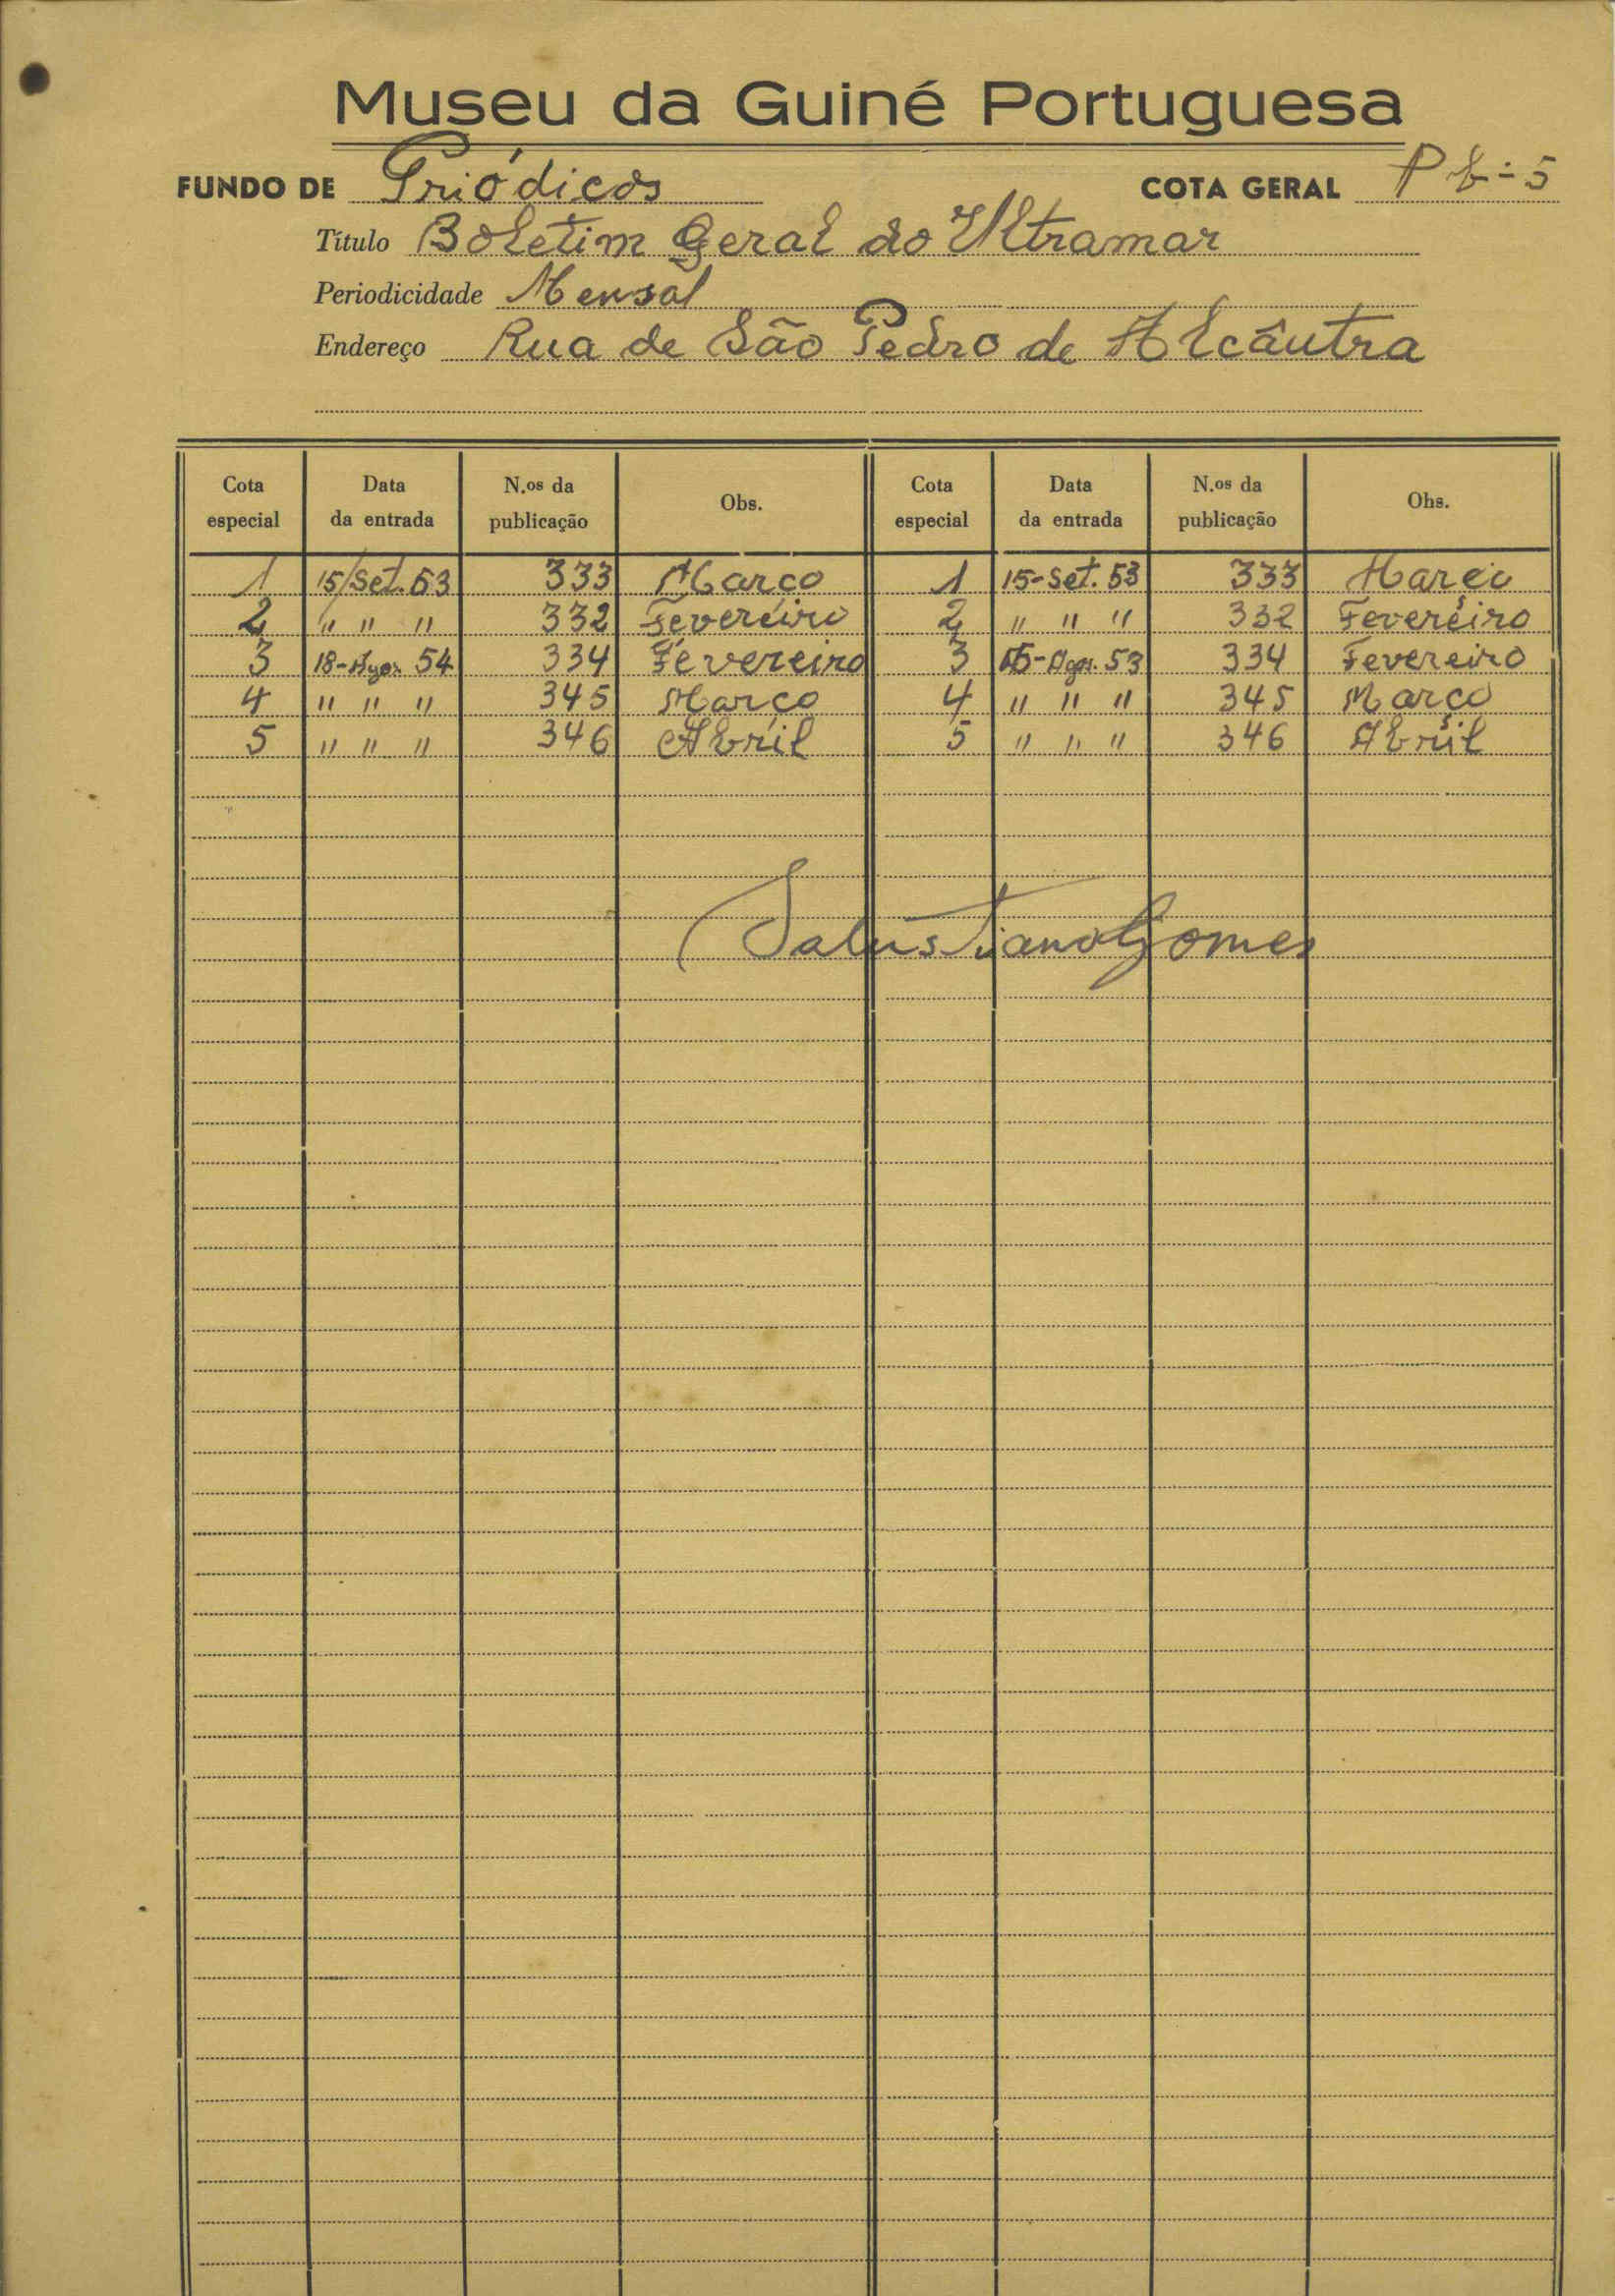 Museu da Guiné Portuguesa
FUNDO DE Priódicos COTA GERAL P b-5
Título Boletim Geral do Ultramar
Periodicidade Mensal
Endereço Rua de São Pedro de Alcântra
Cota especial Data da entrada N.os da publicação Obs. Cota especial Data da entrada N.os da publicação Obs.
1 15/Set. 53 333 Março 1 15-Set. 53 333 Março
2 " " " 332 Fevereiro 2 " " " 332 Fevereiro
3 18-Agos. 54 334 Fevereiro 3 15-Agos. 53 334 Fevereiro
4 " " " 345 Março 4 " " " 345 Março
5 " " " 346 Abril 5 " " " 346 Abril
Salustiano Gomes